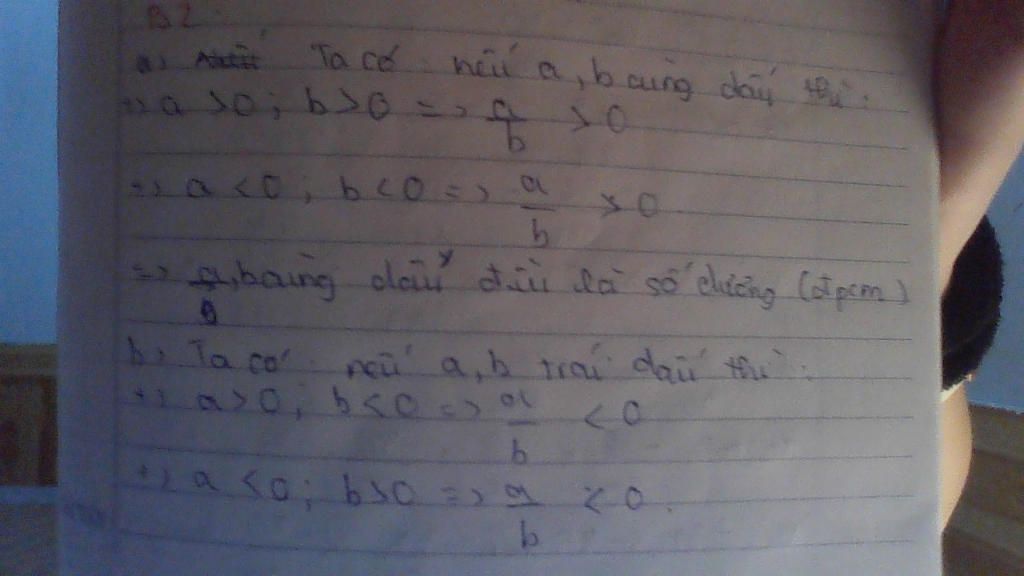 B2.
a) Ta có nếu a, b cùng dấu thì:
+) a > 0; b > 0 => a/b > 0
+) a < 0; b < 0 => a/b > 0
=> a/b, b cùng dấu đều là số dương (đpcm)
b) Ta có: nếu a, b trái dấu thì:
+) a > 0; b < 0 => a/b < 0
+) a < 0; b > 0 => a/b < 0.